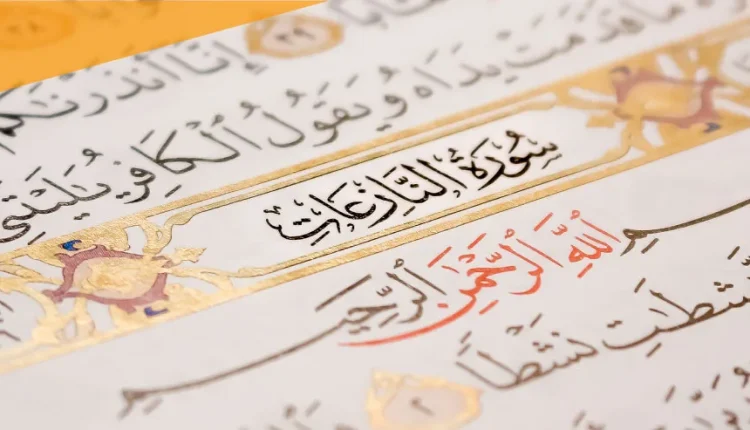 إِنَّا أَنذَرْنَٰكُمْ
مَا قَدَّمَتْ يَدَاهُ وَيَقُولُ ٱلْكَافِرُ يَٰلَيْتَنِي
سُورَةُ النَّازِعَاتِ
ـسمِ اللَّهِ الرَّحْمَٰنِ الرَّحِيمِ
ـشِطَٰتِ نَشْطًا
٢